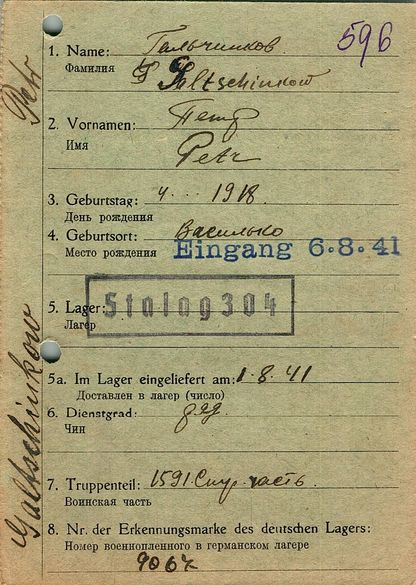 596
1. Name: Гальчинков
Фамилия Galtschinkow
2. Vornamen: Петр
Имя Petr
3. Geburtstag: 4 ... 1918
День рождения
4. Geburtsort: Василько
Место рождения
Eingang 6.8.41
5. Lager: Stalag 304
Лагерь
5a. Im Lager eingeliefert am: 1.8.41
Доставлен в лагерь (число)
6. Dienstgrad: ряд.
Чин
7. Truppenteil: 1591 часть
Воинская часть
8. Nr. der Erkennungsmarke des deutschen Lagers:
Номер военнопленного в германском лагере
Petr
Galtschinkow